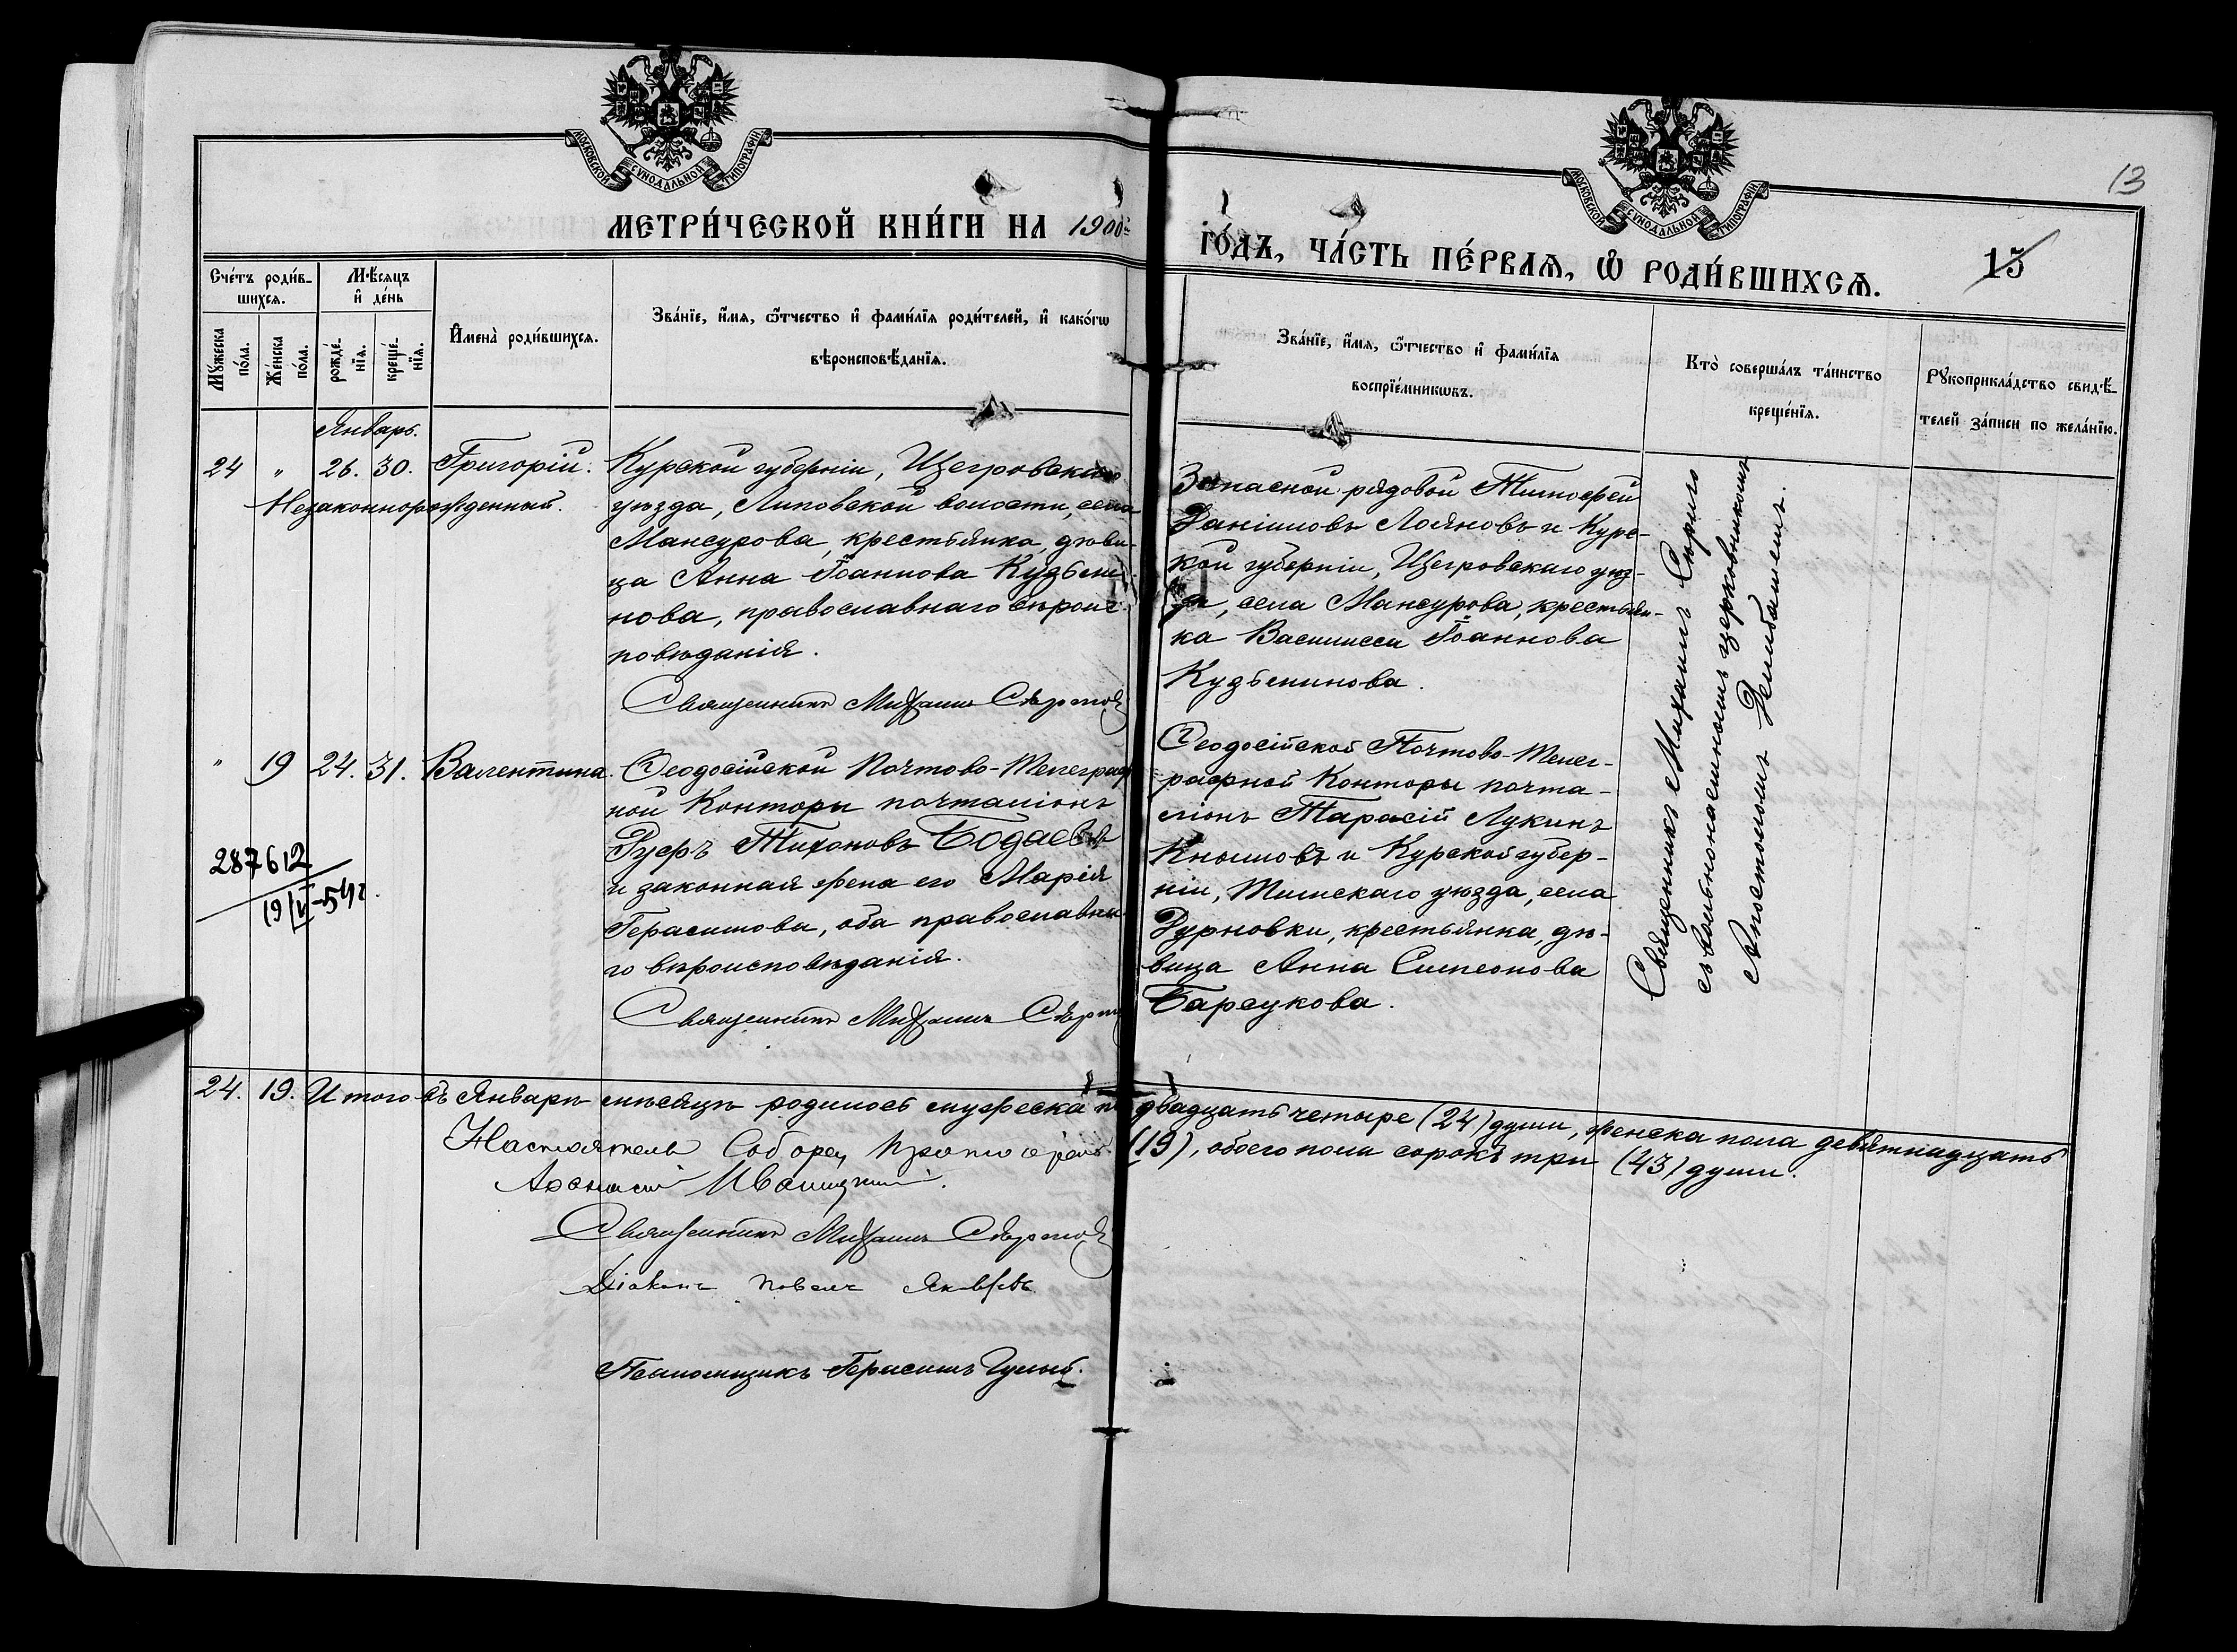 МОСКОВСКОЙ СѴНОДАЛЬНОЙ ТИПОГРАФІИ
МОСКОВСКОЙ СѴНОДАЛЬНОЙ ТИПОГРАФІИ
13
МЕТРИ́ЧЕСКОЙ КНИ́ГИ НА 1900й
ГО́ДЪ, ЧА́СТЬ ПЕ́РВАѦ, Ѽ РОДИ́ВШИХСѦ.
15
Сче́тъ роди́в-
шихсѧ.
Мѣ́сѧцъ
и҆ де́нь
Мꙋ́жеска
по́ла.
Же́нска
по́ла.
рожде́-
нїѧ.
креще́-
нїѧ.
И҆мена̀ роди́вшихсѧ.
Зва́нїе, и҆́мѧ, ѻ҆́тчество и҆ фами́лїѧ роди́телей, и҆ како́гѡ
вѣроисповѣ́данїѧ.
Зва́нїе, и҆́мѧ, ѻ҆́тчество и҆ фами́лїѧ
воспрїе́мникѡвъ.
Кто̀ соверша́лъ та́инство
креще́нїѧ.
Рꙋкоприкла́дство свидѣ́-
телей за́писи по жела́нїю.
Январь.
24 " 26. 30. Григорій.
Незаконнорожденный.
Курской губерніи, Щегровскаго
уѣзда, Липовской волости, села
Мансурова, крестьянка, дѣви-
ца Анна Іоаннова
нова, православнаго вѣроис-
повѣданія.
Священникъ Михаилъ
Запасной рядовой Тимофей
Даніиловъ Лояновъ и Курс-
кой губерніи, Щегровскаго уѣз-
да, села Мансурова, крестьян-
ка Василисса Іоаннова
Кудьминова.
Священникъ Михаилъ
съ вольнонаемнымъ церковникомъ
Апостоломъ
" 19 24. 31. Валентина.
287612
19/II-54г.
Ѳеодосійской Почтово-Телеграф
ной Конторы почталіонъ
Тихоновъ Бодаевъ
и законная жена его Марія
Герасимова, оба православна
го вѣроисповѣданія.
Священникъ Михаилъ
Ѳеодосійской Почтово-Телег-
рафной Конторы почта-
ліонъ Тарасій Лукинъ
и Курской губер-
ніи, Тимскаго уѣзда, села
Дурновки, крестьянка, дѣ-
вица Анна Симеонова
Барсукова.
24. 19. Итого въ Январѣ мѣсяцѣ родилось мужеска п двадцать четыре (24) души, женска пола девятнадцать
(19), обоего пола сорокъ три (43) души.
Настоятель Собора, Протоіерей
Аѳанасій Иваницкій.
Священникъ Михаилъ
Діаконъ Павелъ Яковлевъ
Псаломщикъ Герасимъ